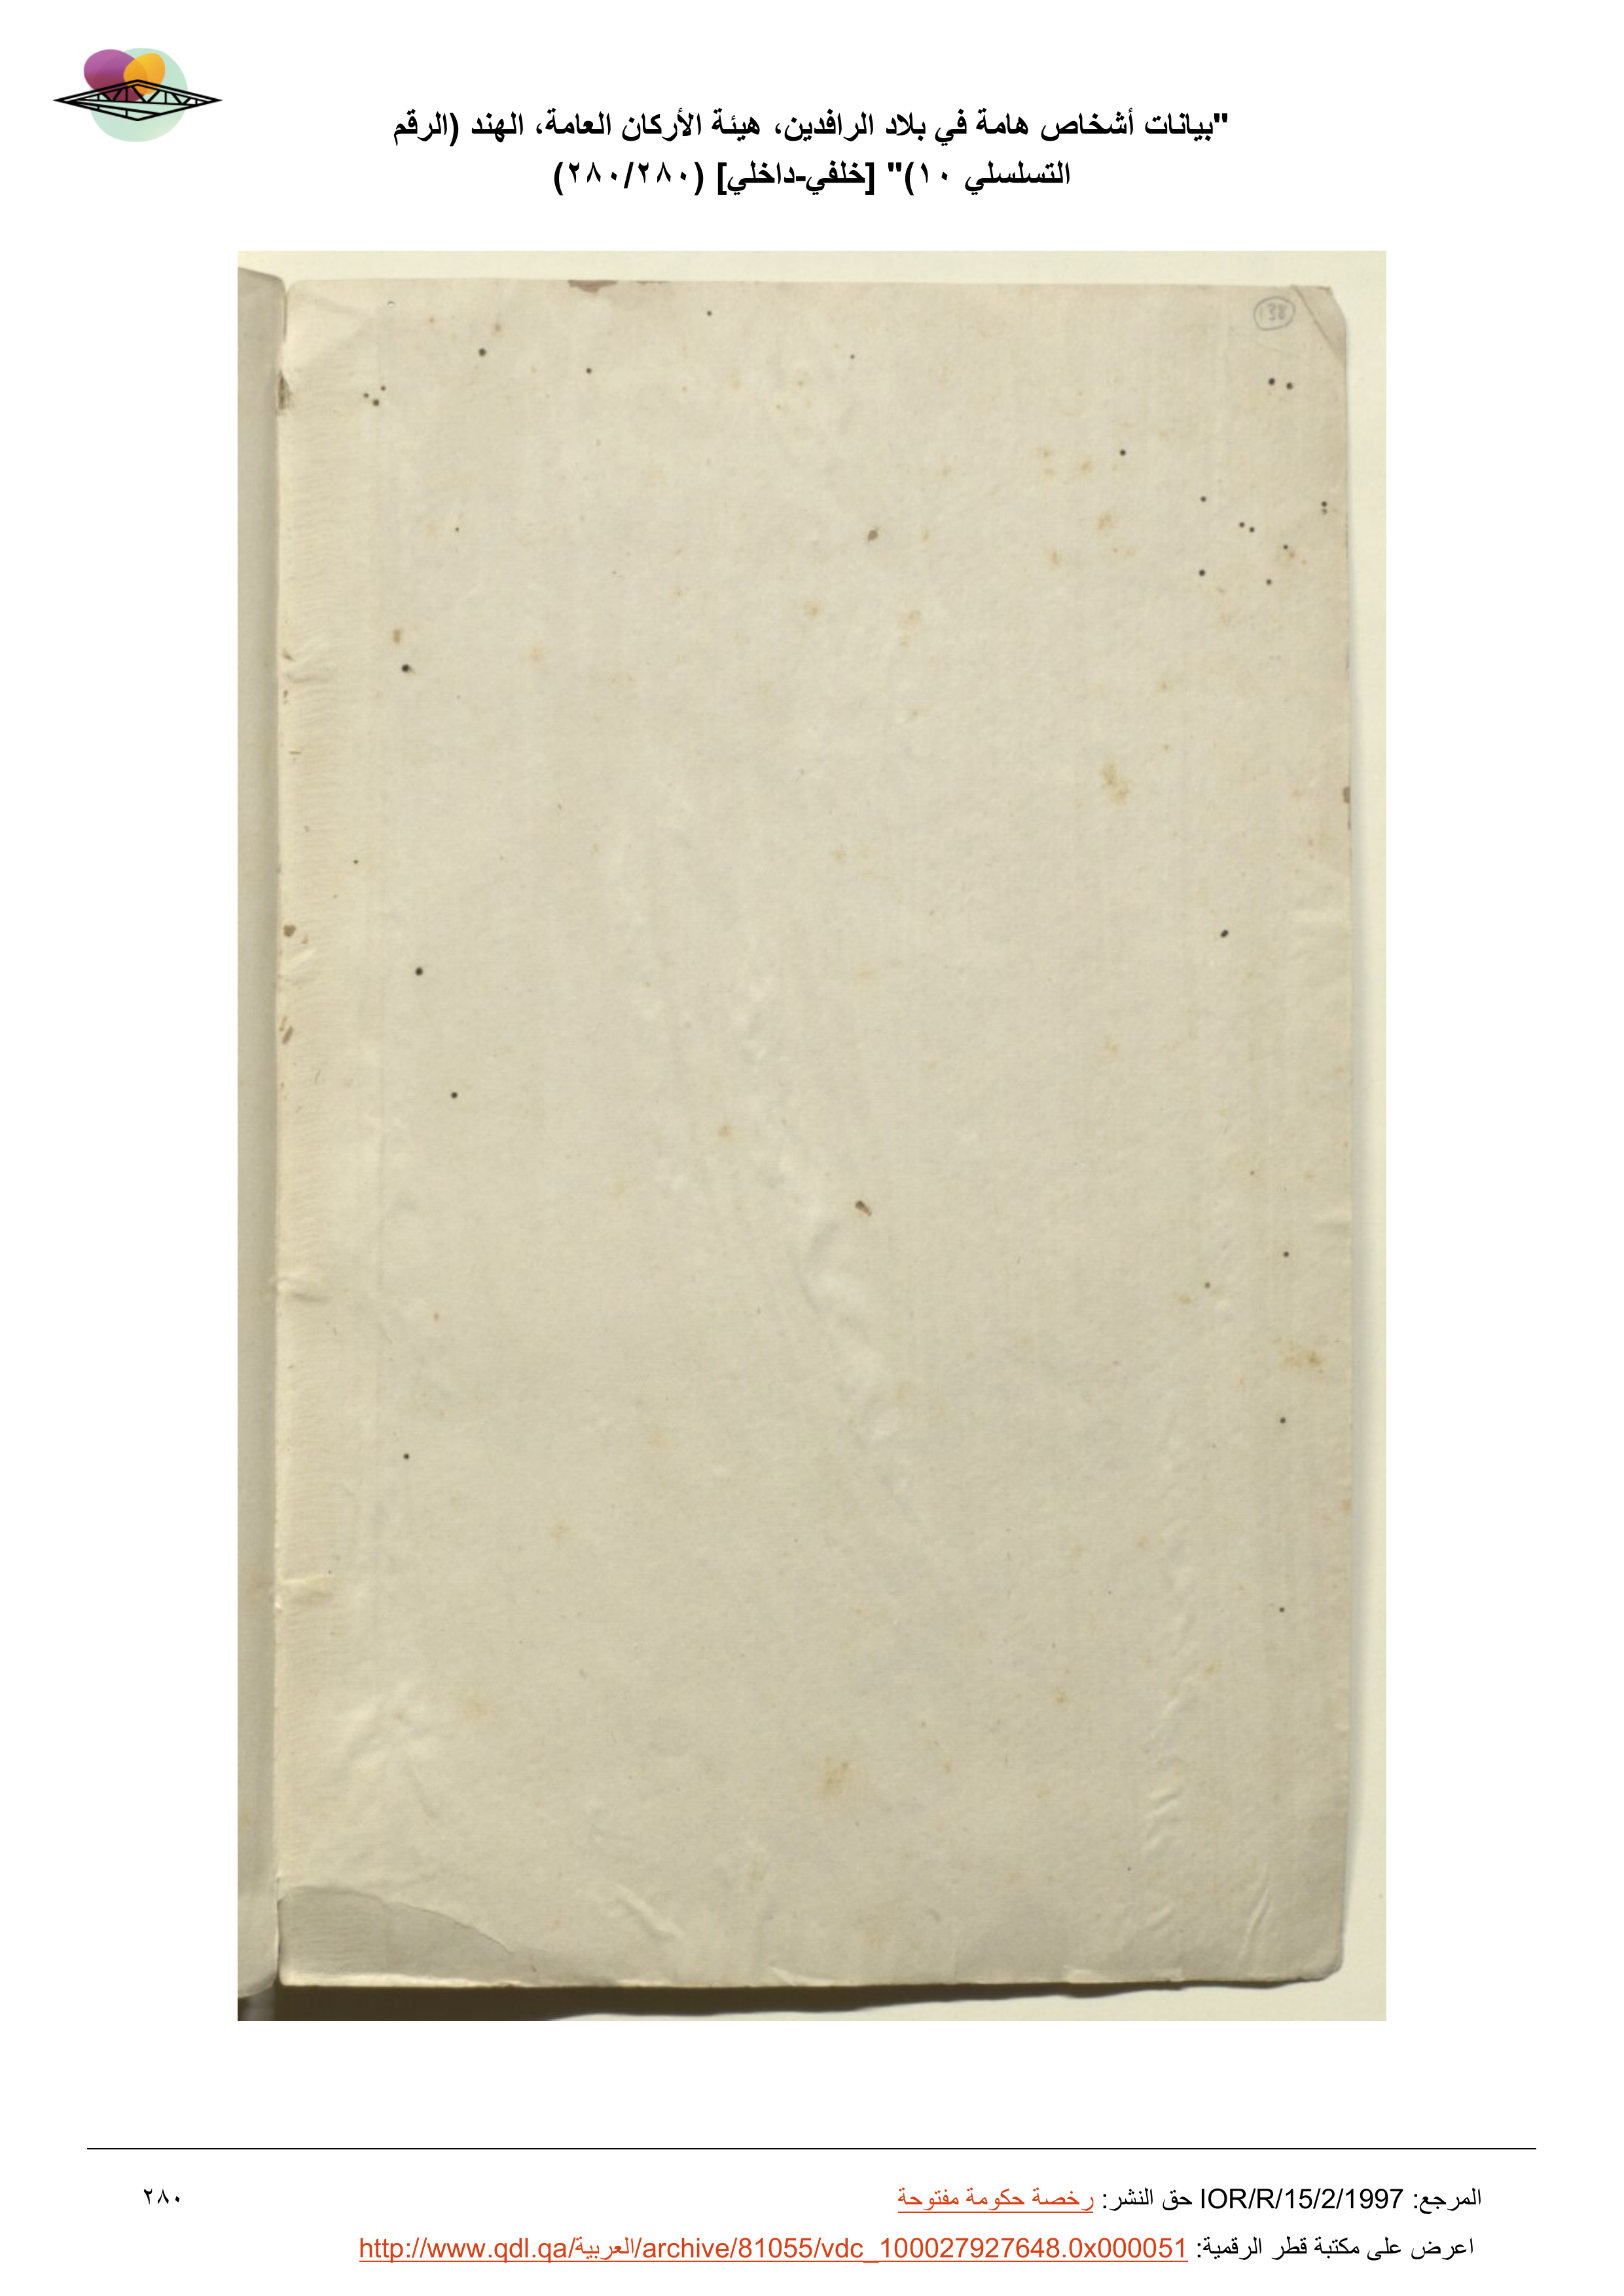 "بيانات أشخاص هامة في بلاد الرافدين، هيئة الأركان العامة، الهند (الرقم
التسلسلي ١٠)" [خلفي-داخلي] (٢٨٠/٢٨٠)
138
المرجع: IOR/R/15/2/1997 حق النشر: رخصة حكومة مفتوحة
٢٨٠
اعرض على مكتبة قطر الرقمية: http://www.qdl.qa/العربية/archive/81055/vdc_100027927648.0x000051